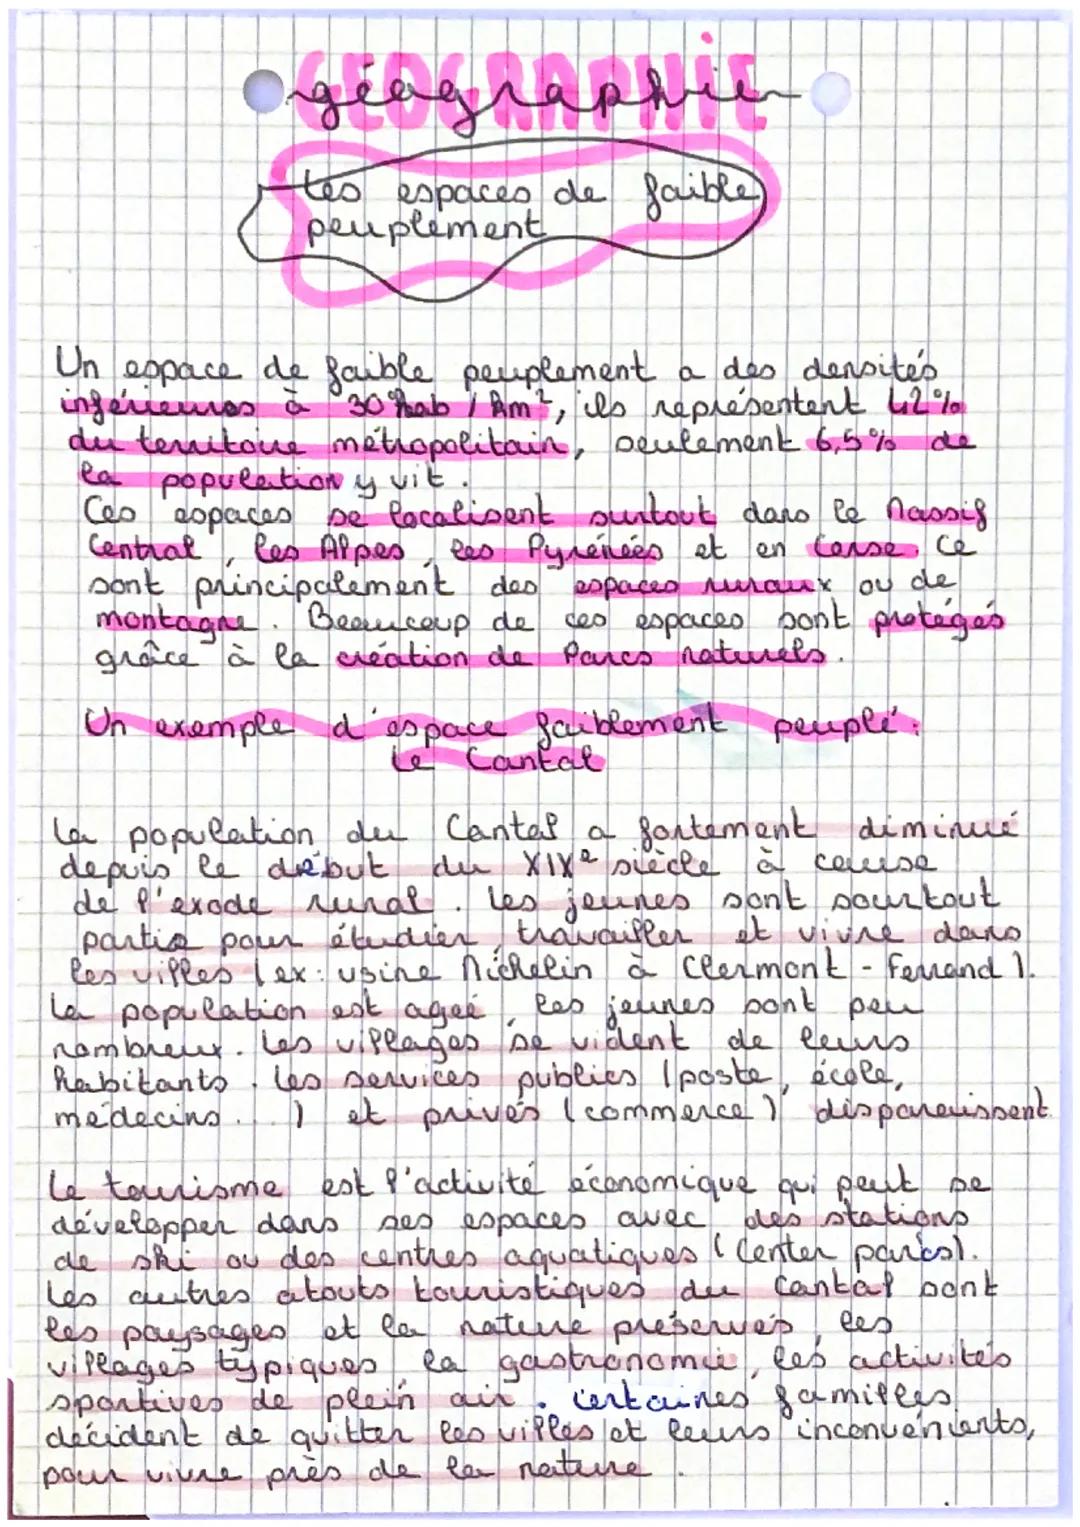 GEOGRAPHIE
géographie
Les espaces de faible
peuplement
Un espace de faible peuplement a des densités
inférieures à 30 hab / km², ils représentent 42%
du territoire métropolitain, seulement 6,5% de
la population y vit.
Ces espaces se localisent surtout dans le Massif
Central, les Alpes, les Pyrénées et en Corse. Ce
sont principalement des espaces ruraux ou de
montagne. Beaucoup de ces espaces sont protégés
grâce à la création de Parcs naturels.
Un exemple d'espace faiblement peuplé :
Le Cantal
La population du Cantal a fortement diminué
depuis le début du XIXe siècle à cause
de l'exode rural. Les jeunes sont sourtout
partis pour étudier, travailler et vivre dans
les villes (ex: usine Michelin à Clermont-Ferrand).
La population est ageé, les jeunes sont peu
nombreux. Les villages se vident de leurs
habitants. Les services publics (poste, école,
médecins...) et privés (commerce) disparaissent.
Le tourisme est l'activité économique qui peut se
développer dans ses espaces avec des stations
de ski ou des centres aquatiques (Center parcs).
Les autres atouts touristiques du Cantal sont
les paysages et la nature préservés, les
villages typiques, la gastronomie, les activités
sportives de plein air. Certaines familles
décident de quitter les villes et leurs inconvénients,
pour vivre près de la nature.